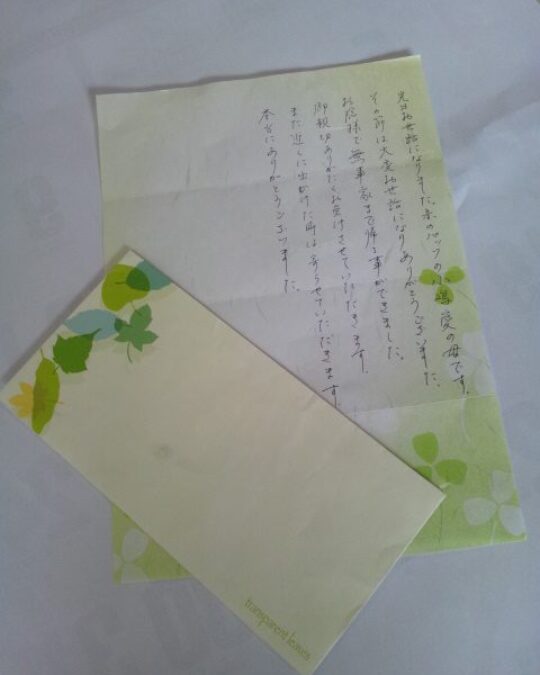 先日お世話になりました、赤のパッソの小嶋愛の母です。
その節は大変お世話になりありがとうございました。
お陰様で無事家まで帰る事ができました。
御親切ありがたくお受けさせていただきます。
また近くに出かけた時は寄らせていただきます。
本当にありがとうございました。
transparent leaves